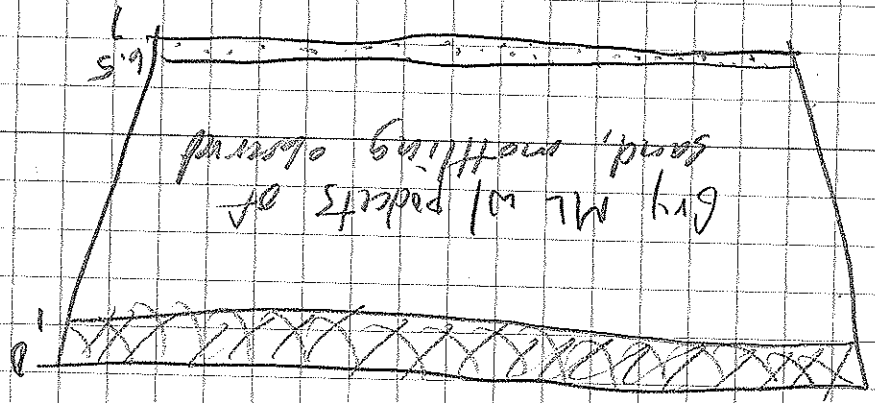 0
1
Gry ML w/ pockets of
sand, mottling observed
6.5
7